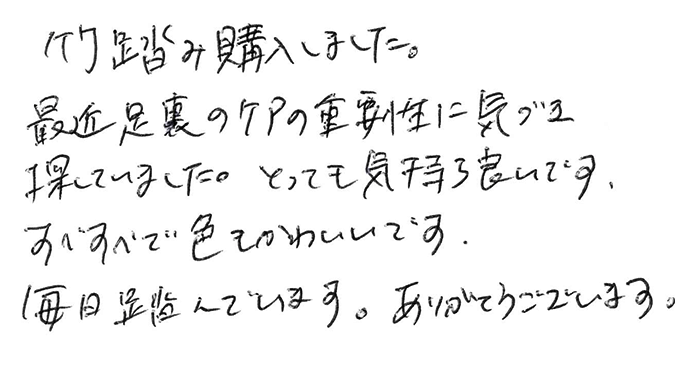 竹踏み購入しました。
最近足裏のケアの重要性に気づき
探していました。とっても気持ち良いです.
すべすべで色もかわいいです.
毎日踏んでいます。ありがとうございます。